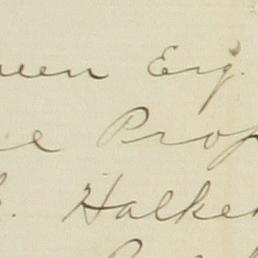 een Esq.
e Prop
. Halke